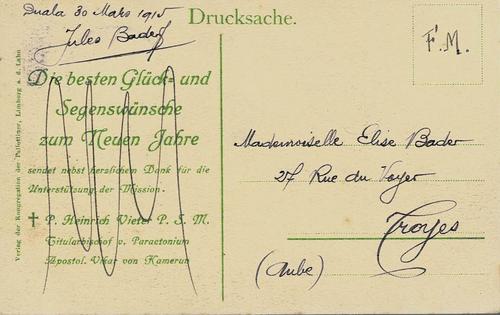 Duala 30 Mars 1915
Jules Bader
Drucksache.
F.M.
Die besten Glück- und
Segenswünsche
zum Neuen Jahre
sendet nebst herzlichem Dank für die
Unterstützung der Mission.
† P. Heinrich Vieter P. S. M.
Titularbischof v. Paraetonium
Apostol. Vikar von Kamerun
Verlag der Kongregation der Pallottiner, Limburg a. d. Lahn
Mademoiselle Elise Bader
27 Rue du Voyer
Troyes
(Aube)